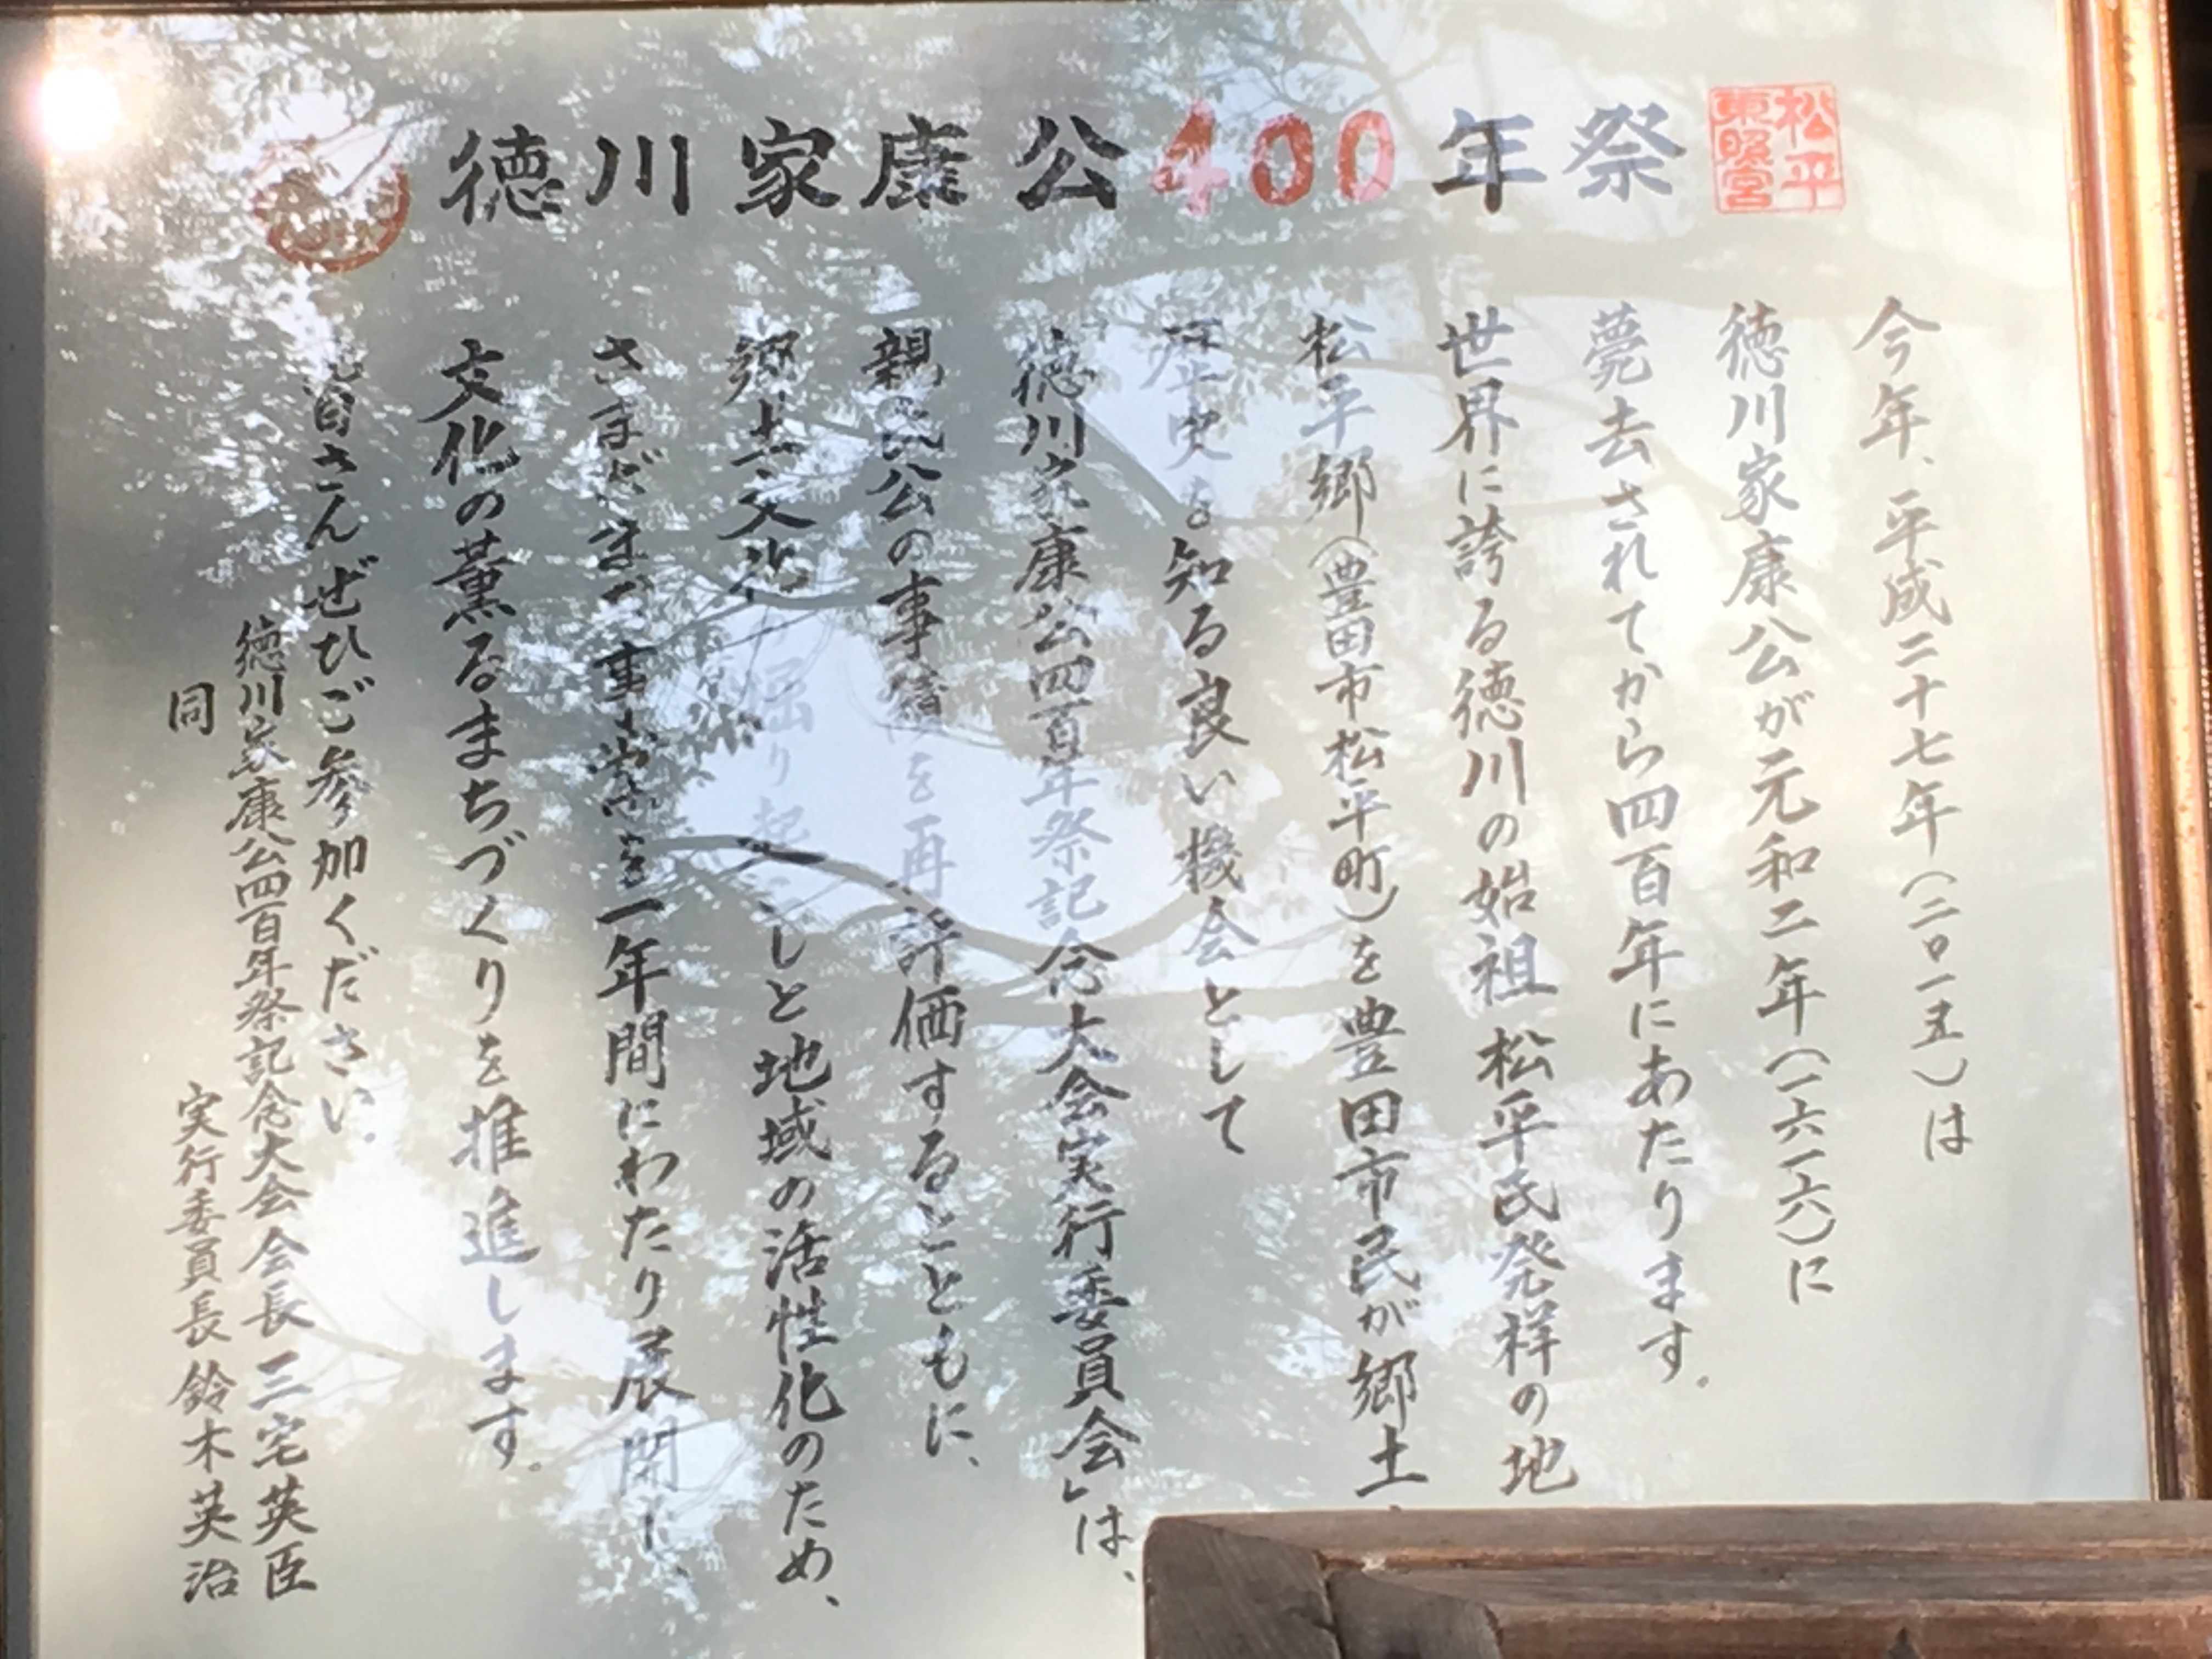 徳川家康公400年祭
松平
東照宮
今年、平成二十七年(二〇一五)は
徳川家康公が元和二年(一六一六)に
薨去されてから四百年にあたります。
世界に誇る徳川の始祖 松平氏発祥の地
松平郷(豊田市松平町)を豊田市民が郷土
歴史を知る良い機会として
徳川家康公四百年祭記念大会実行委員会」は、
親氏公の事績を再評価するとともに、
郷土文化の掘り起こしと地域の活性化のため、
さまざまな事業を一年間にわたり展開し、
文化の薫るまちづくりを推進します。
皆さんぜひご参加ください。
徳川家康公四百年祭記念大会会長 三宅英臣
同 実行委員長 鈴木英治